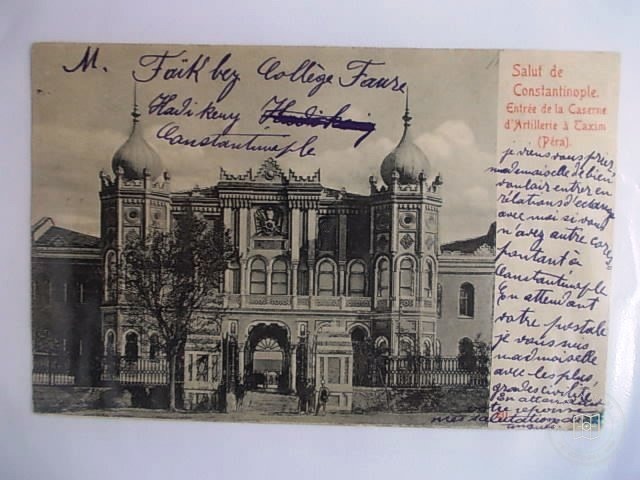 M. Faïk bey Collège Faure
Hadi-keuy
Constantinople
Salut de
Constantinople.
Entrée de la Caserne
d'Artillerie à Taxim
(Péra).
je viens vous prier
mademoiselle de bien
vouloir entrer en
rélations d'échange
avec moi si vous
n'avez autre corres
pontant à
Constantinople
En attendant
votre postale
je vous suis
madmoiselle
avec les plus
grandes civilités
En attendant
votre reponse
mes salutations